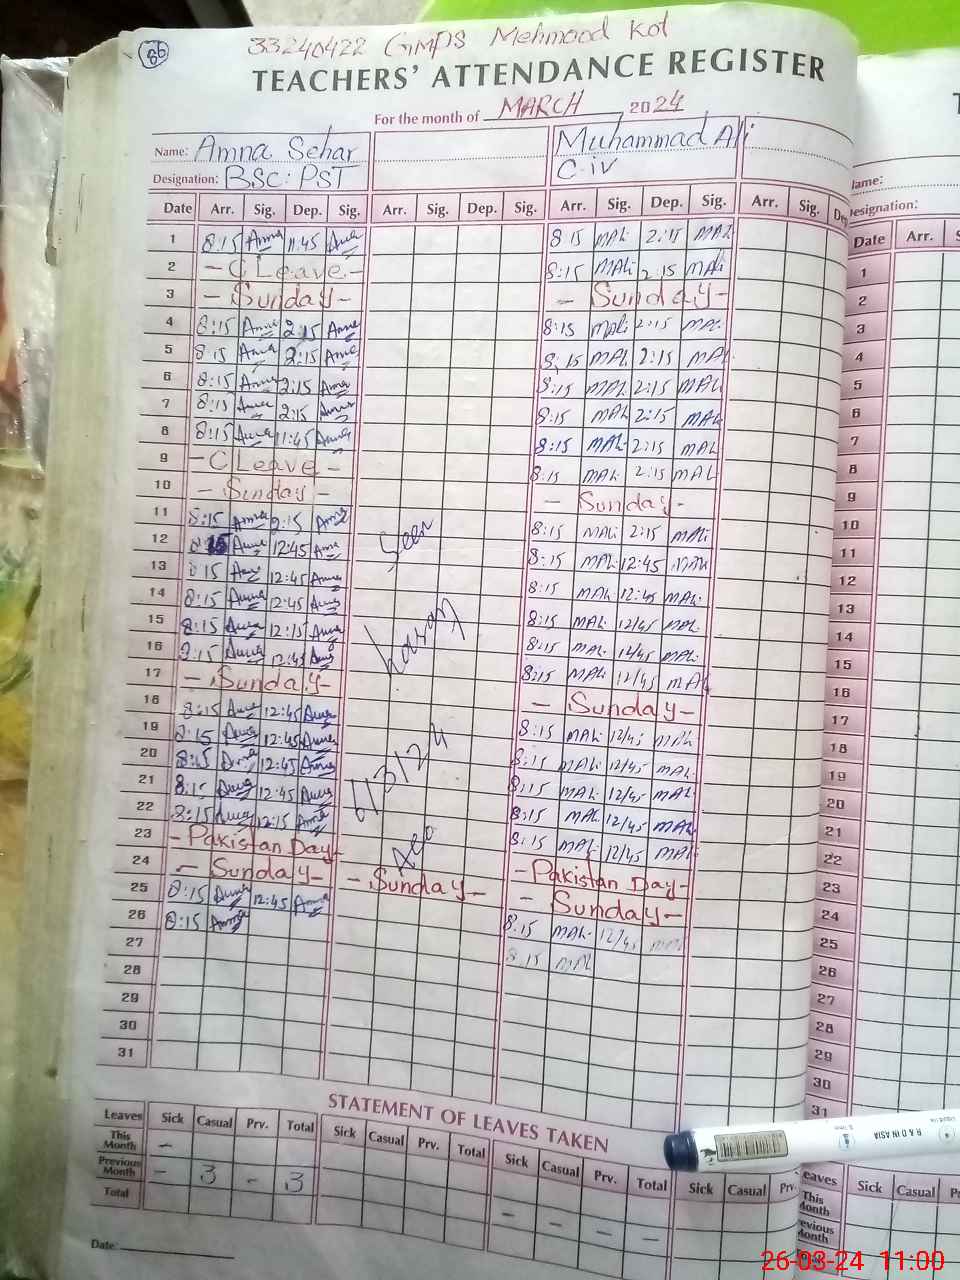 86
33240422 GMPS Mehmood Kot
TEACHERS' ATTENDANCE REGISTER
For the month of MARCH 2024
Name: Amna Sehar Muhammad Ali
Designation: BSC: PST C-iv
Date Arr. Sig. Dep. Sig. Arr. Sig. Dep. Sig. Arr. Sig. Dep. Sig. Arr. Sig. Dep
1 8:15 Amna 11:45 Amna 8:15 MAli 2:15 MAli
2 - C Leave - 8:15 MAli 2:15 MAli
3 - Sunday - - Sunday -
4 8:15 Amna 2:15 Amna 8:15 MAli 2:15 MAli
5 8:15 Amna 2:15 Amna 8:15 MAli 2:15 MAli
6 8:15 Amna 2:15 Amna 8:15 MAli 2:15 MAli
7 8:15 Amna 2:15 Amna 8:15 MAli 2:15 MAli
8 8:15 Amna 11:45 Amna 8:15 MAli 2:15 MAli
9 - C Leave - 8:15 MAli 2:15 MAli
10 - Sunday - - Sunday -
11 8:15 Amna 2:15 Amna 8:15 MAli 2:15 MAli
12 8:15 Amna 12:45 Amna 8:15 MAli 12:45 MAli
13 8:15 Amna 12:45 Amna 8:15 MAli 12:45 MAli
14 8:15 Amna 12:45 Amna 8:15 MAli 12/45 MAli
15 8:15 Amna 12:15 Amna 8:15 MAli 12/45 MAli
16 8:15 Amna 12:45 Amna 8:15 MAli 12/45 MAli
17 - Sunday - - Sunday -
18 8:15 Amna 12:45 Amna 8:15 MAli 12/45 MAli
19 8:15 Amna 12:45 Amna 8:15 MAli 12/45 MAli
20 8:15 Amna 12:45 Amna 8:15 MAli 12/45 MAli
21 8:15 Amna 12:45 Amna 8:15 MAli 12/45 MAli
22 8:15 Amna 12:15 Amna 8:15 MAli 12/45 MAli
23 - Pakistan Day - - Pakistan Day -
24 - Sunday - - Sunday - - Sunday -
25 8:15 Amna 12:45 Amna 8:15 MAli 12/45 MAli
26 8:15 Amna 8:15 MAli
27
28
29
30
31
Seen
STATEMENT OF LEAVES TAKEN
Leaves Sick Casual Prv. Total Sick Casual Prv. Total Sick Casual Prv. Total Sick Casual Prv.
This Month -
Previous Month - 3 - 3
Total - - - -
Date:
Designation:
Date Arr.
1
2
3
4
5
6
7
8
9
10
11
12
13
14
15
16
17
18
19
20
21
22
23
24
25
26
27
28
29
30
31
R & D IN ASIA
Leaves Sick Casual
This Month
26-03-24 11:00